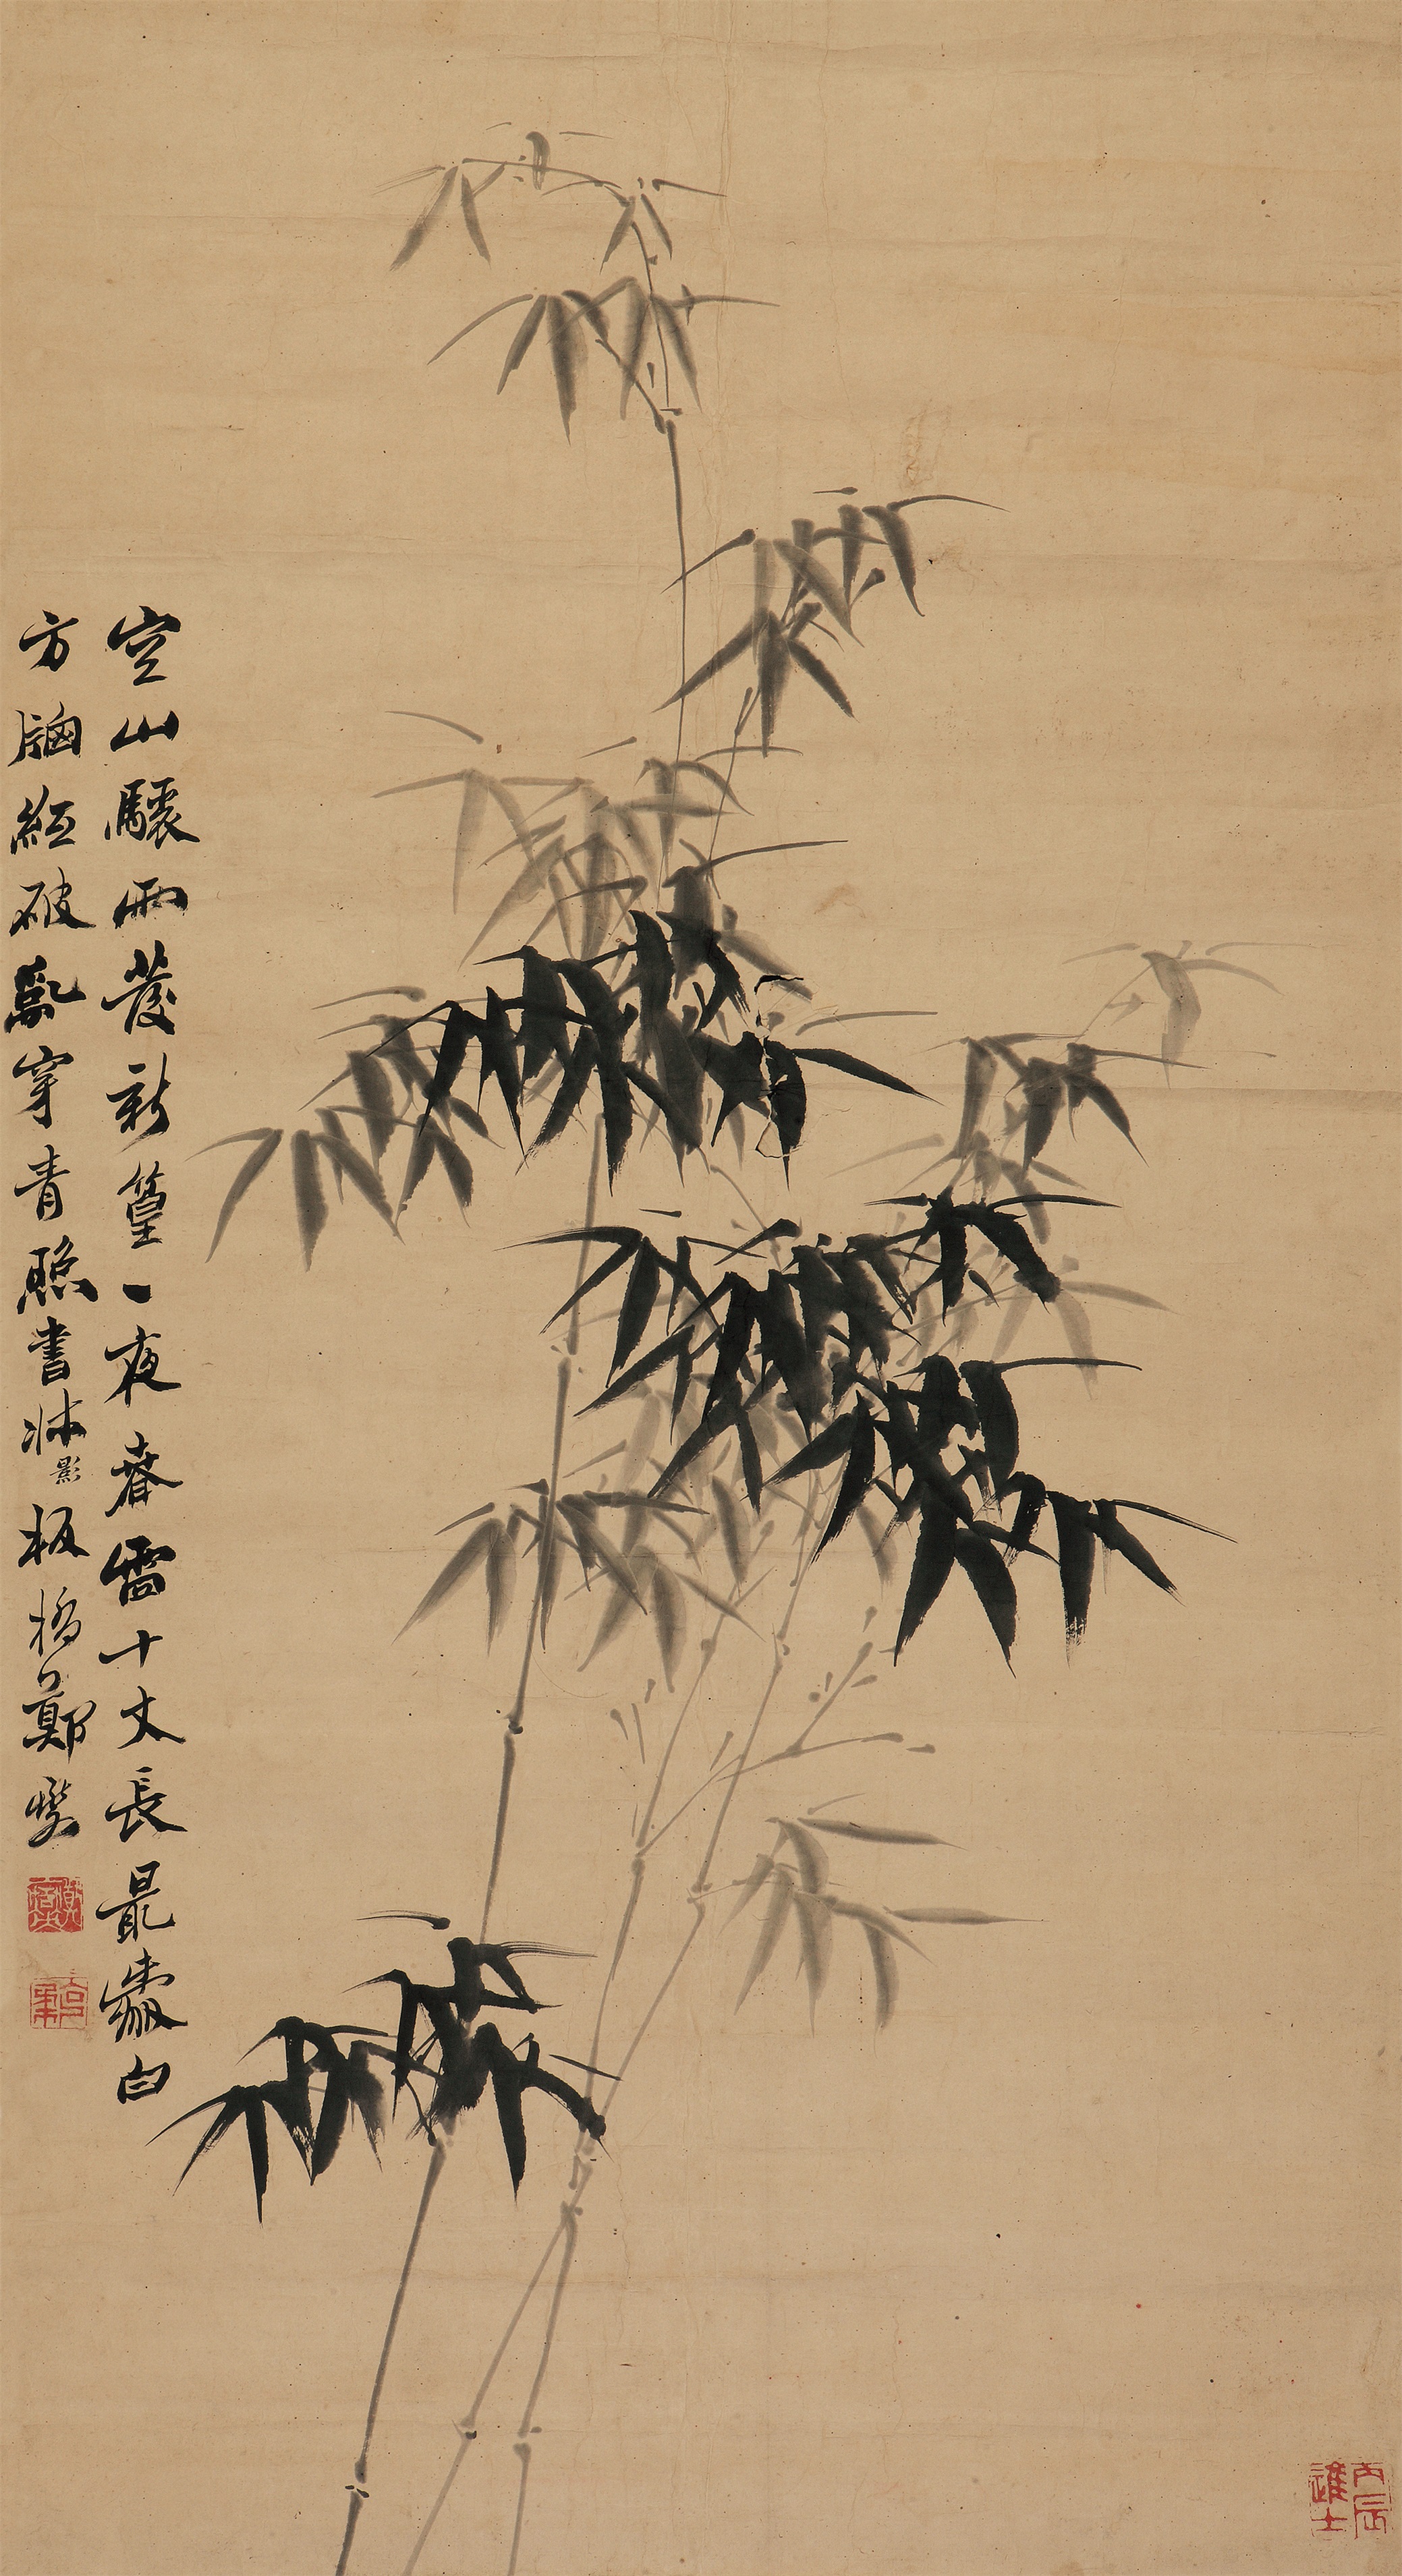 空山驟雨發新篁一夜春雷十丈長最白
方牕紙破亂穿青照書牀影板橋鄭燮
克柔
丙辰進士